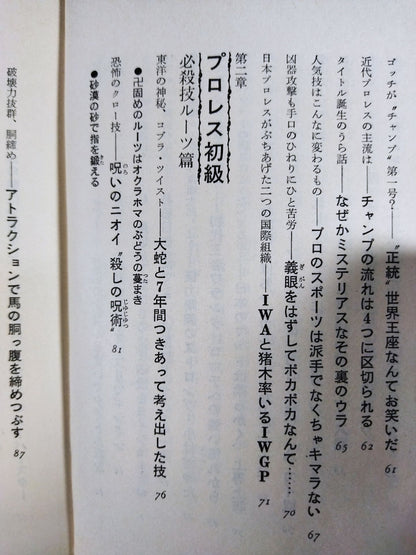 ゴッチが〝チャンプ〟第一号?——〝正統〟世界王座なんてお笑いだ 61
近代プロレスの主流は——チャンプの流れは4つに区切られる 62
タイトル誕生のうら話——なぜかミステリアスなその裏のウラ 65
人気技はこんなに変わるもの——プロのスポーツは派手でなくちゃキマラない 67
凶器攻撃も手口のひねりにひと苦労——義眼をはずしてポカポカなんて…… 70
日本プロレスがぶちあげた二つの国際組織——IWAと猪木率いるIWGP 71
第二章
プロレス初級
必殺技ルーツ篇
東洋の神秘、コブラ・ツイスト——大蛇と7年間つきあって考え出した技 76
●卍固めのルーツはオクラホマのぶどうの蔓まき
恐怖のクロー技——呪いのニオイ〝殺しの呪術〟 81
●砂漠の砂で指を鍛える
破壊力抜群、胴締め——アトラクションで馬の胴っ腹を締めつぶす 87